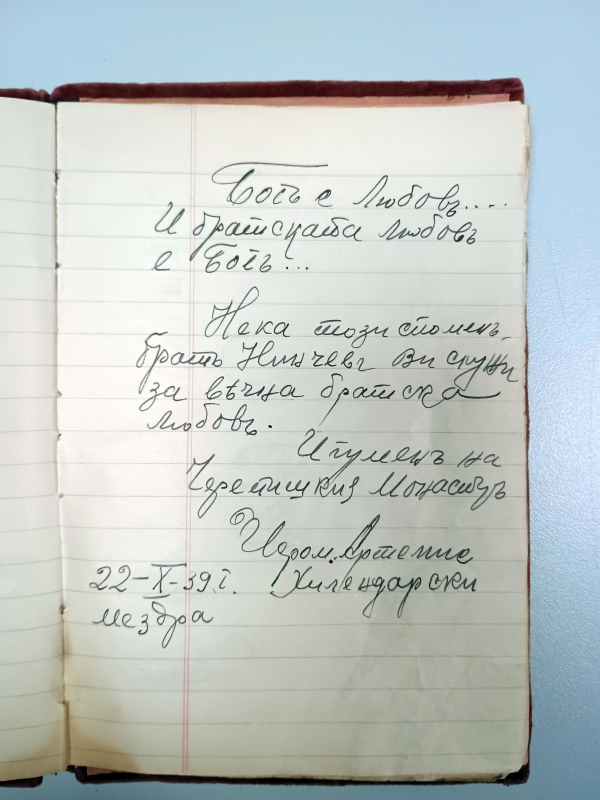 Богъ е Любовъ....
И братската любовъ
е Богъ...
Нека този споменъ,
братъ Нинчевъ Ви служи
за вѣчна братска
любовъ.
Игуменъ на
Черепишкия Монастиръ
Иером. Артемие
22-X-39 г. Хилендарски
Мездра